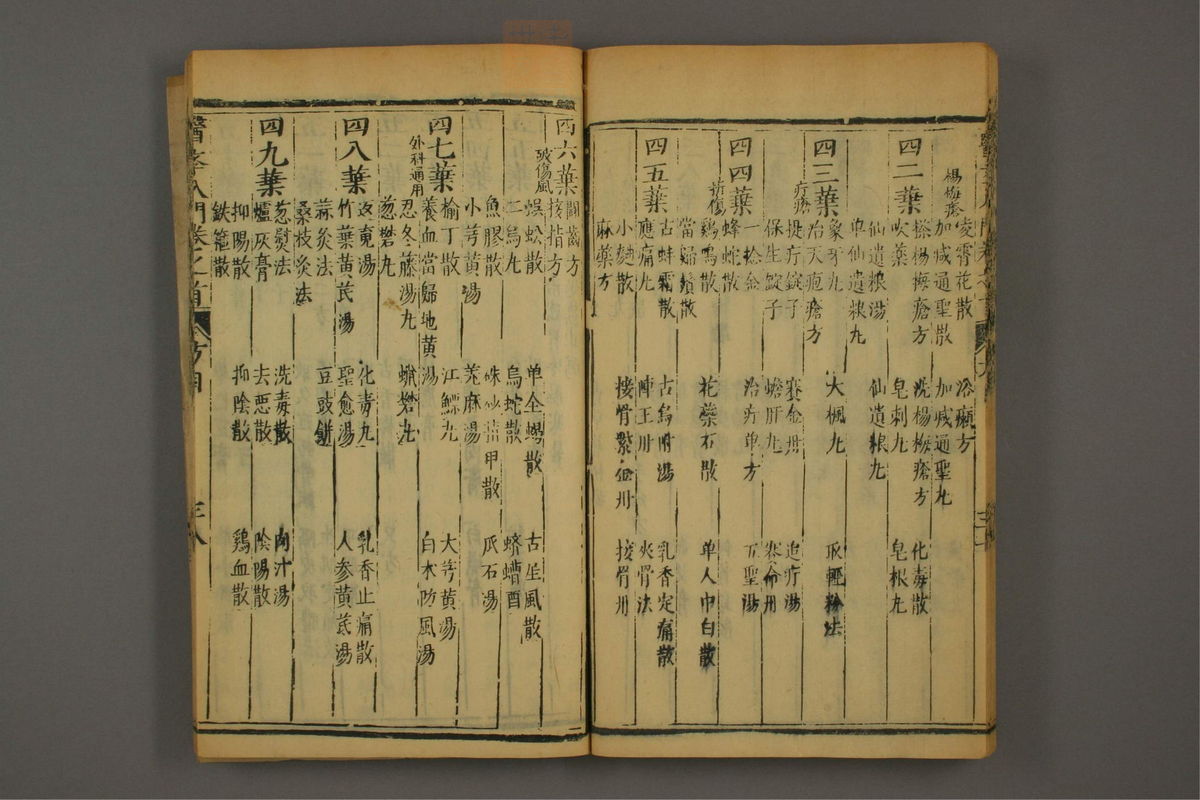 楊梅瘡
凌霄花散 浴癩方
加减通聖散 加减通聖丸 化毒散
四二葉
搽楊梅瘡方 洗楊梅瘡方
吹藥 皂刺丸 皂根丸
仙遺粮湯 仙遺粮丸
单仙遺粮丸
四三葉
象牙丸 大楓丸 取輕粉法
治天疱瘡方
疔瘡
捉疔錠子 賽金丹 追疔湯
保生錠子 蟾肝丸 奪命丹
四四葉
一捻金 治疔单方 五聖湯
蜂蛇散
折傷
鷄鳴散 花蘂石散 单人中白散
當歸鬚散
四五葉
古蚌霜散 古烏附湯 乳香定痛散
應痛丸 陣王丹 夾骨法
小麯散 接骨紫金丹 接骨丹
麻藥方
四六葉
鬪齒方
接指方
破傷風
蜈蚣散 单全蝎散 古坐風散
二烏丸 烏蛇散 蠐螬酒
魚膠散 硃砂指甲散 瓜石湯
小芎黄湯 羌麻湯
四七葉
榆丁散 江鰾丸 大芎黄湯
養血當歸地黄湯 白术防風湯
外科通用
忍冬藤湯丸 蠟礬丸
葱礬丸
四八葉
返䰟湯 化毒丸 乳香止痛散
竹葉黄芪湯 聖愈湯 人參黄芪湯
蒜灸法 豆豉餅
桑枝灸法
四九葉
葱熨法 洗毒散 肉汁湯
爐灰膏 去惡散 陰陽散
抑陽散 抑陰散 鷄血散
鉄箍散
醫學入門卷之首 方目 三八